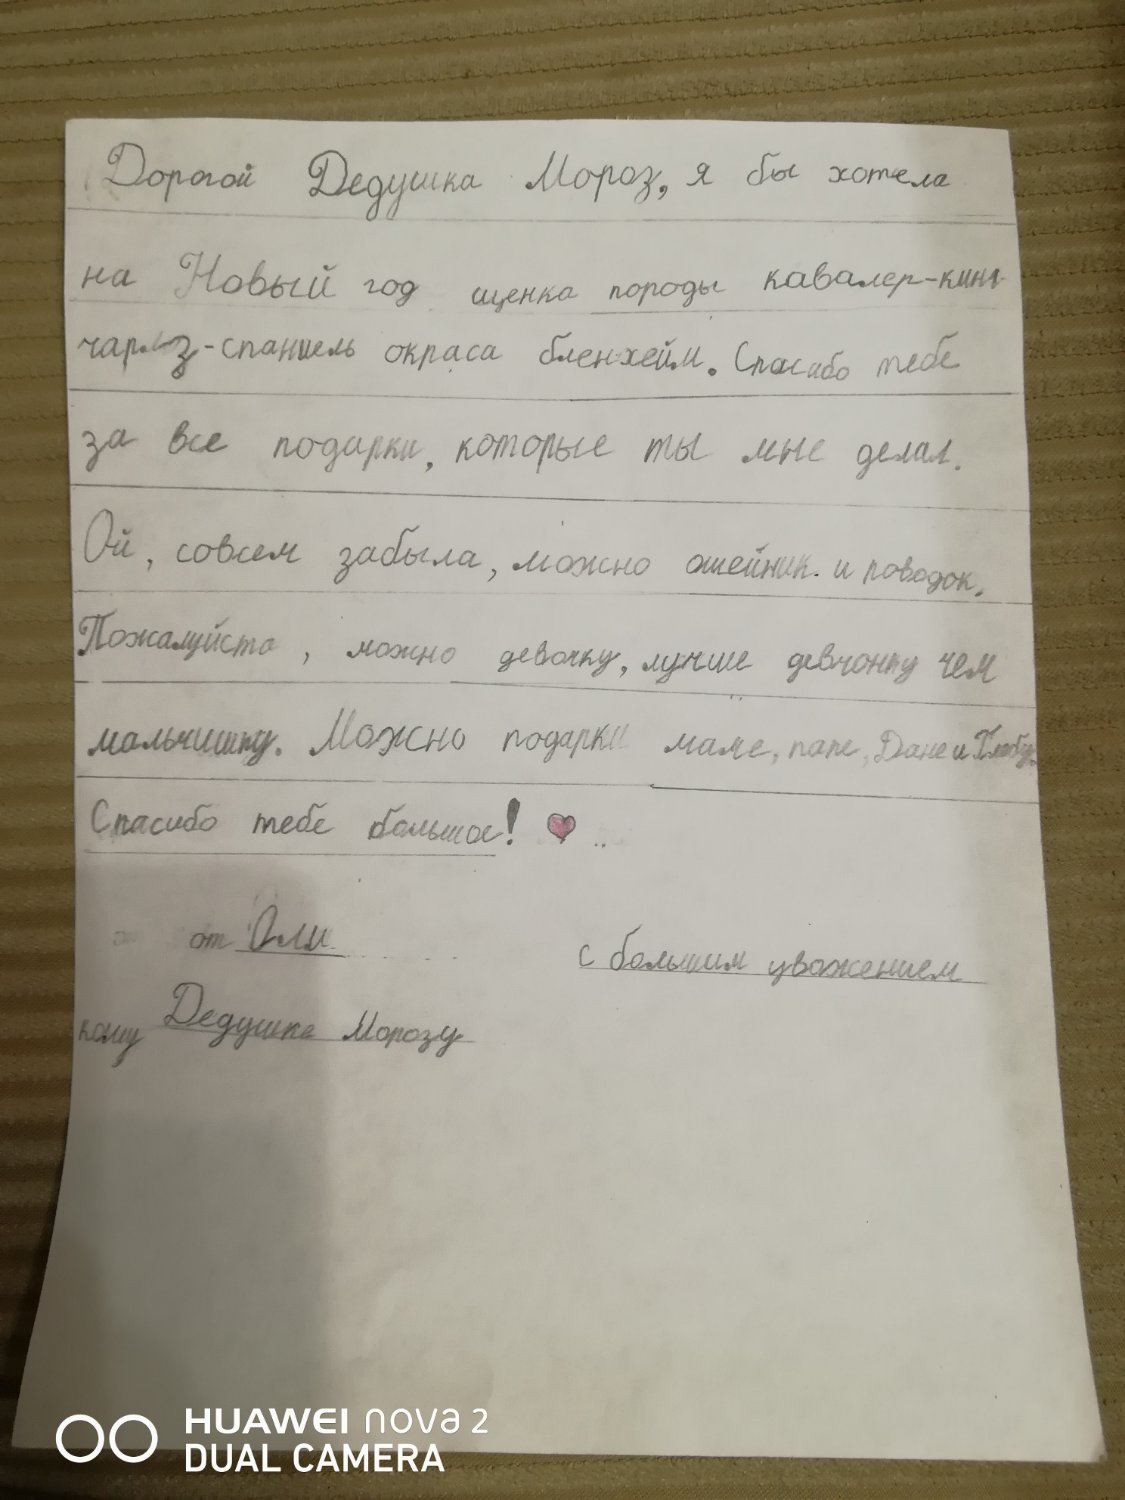 Дорогой Дедушка Мороз, я бы хотела
на Новый год щенка породы кавалер-кинг
чарльз-спаниель окраса бленхейм. Спасибо тебе
за все подарки, которые ты мне делал.
Ой, совсем забыла, можно ошейник и поводок.
Пожалуйста, можно девочку, лучше девчонку чем
мальчишку. Можно подарки маме, папе, Дане и Глебу.
Спасибо тебе большое!
от Оли
с большим уважением
кому Дедушке Морозу
HUAWEI nova 2
DUAL CAMERA